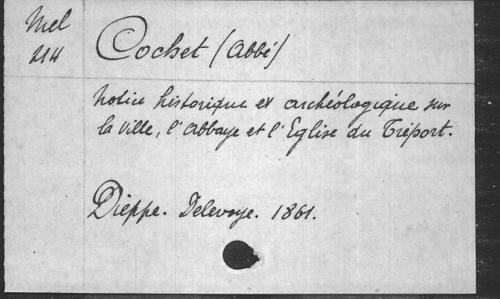 Mel
214
Cochet (Abbé)
Notice historique et archéologique sur
la ville, l'Abbaye et l'Eglise du Tréport.
Dieppe. Delevoye. 1861.